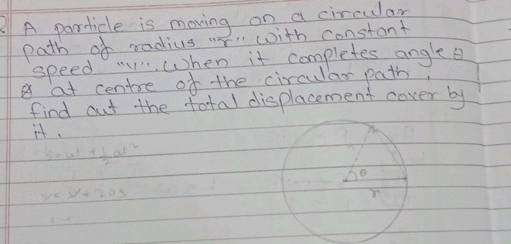 A particle is moving on a circular
path of radius "r" with constant
speed "v". When it completes angle θ
θ at centre of the circular path,
find out the total displacement cover by
it.
θ
r